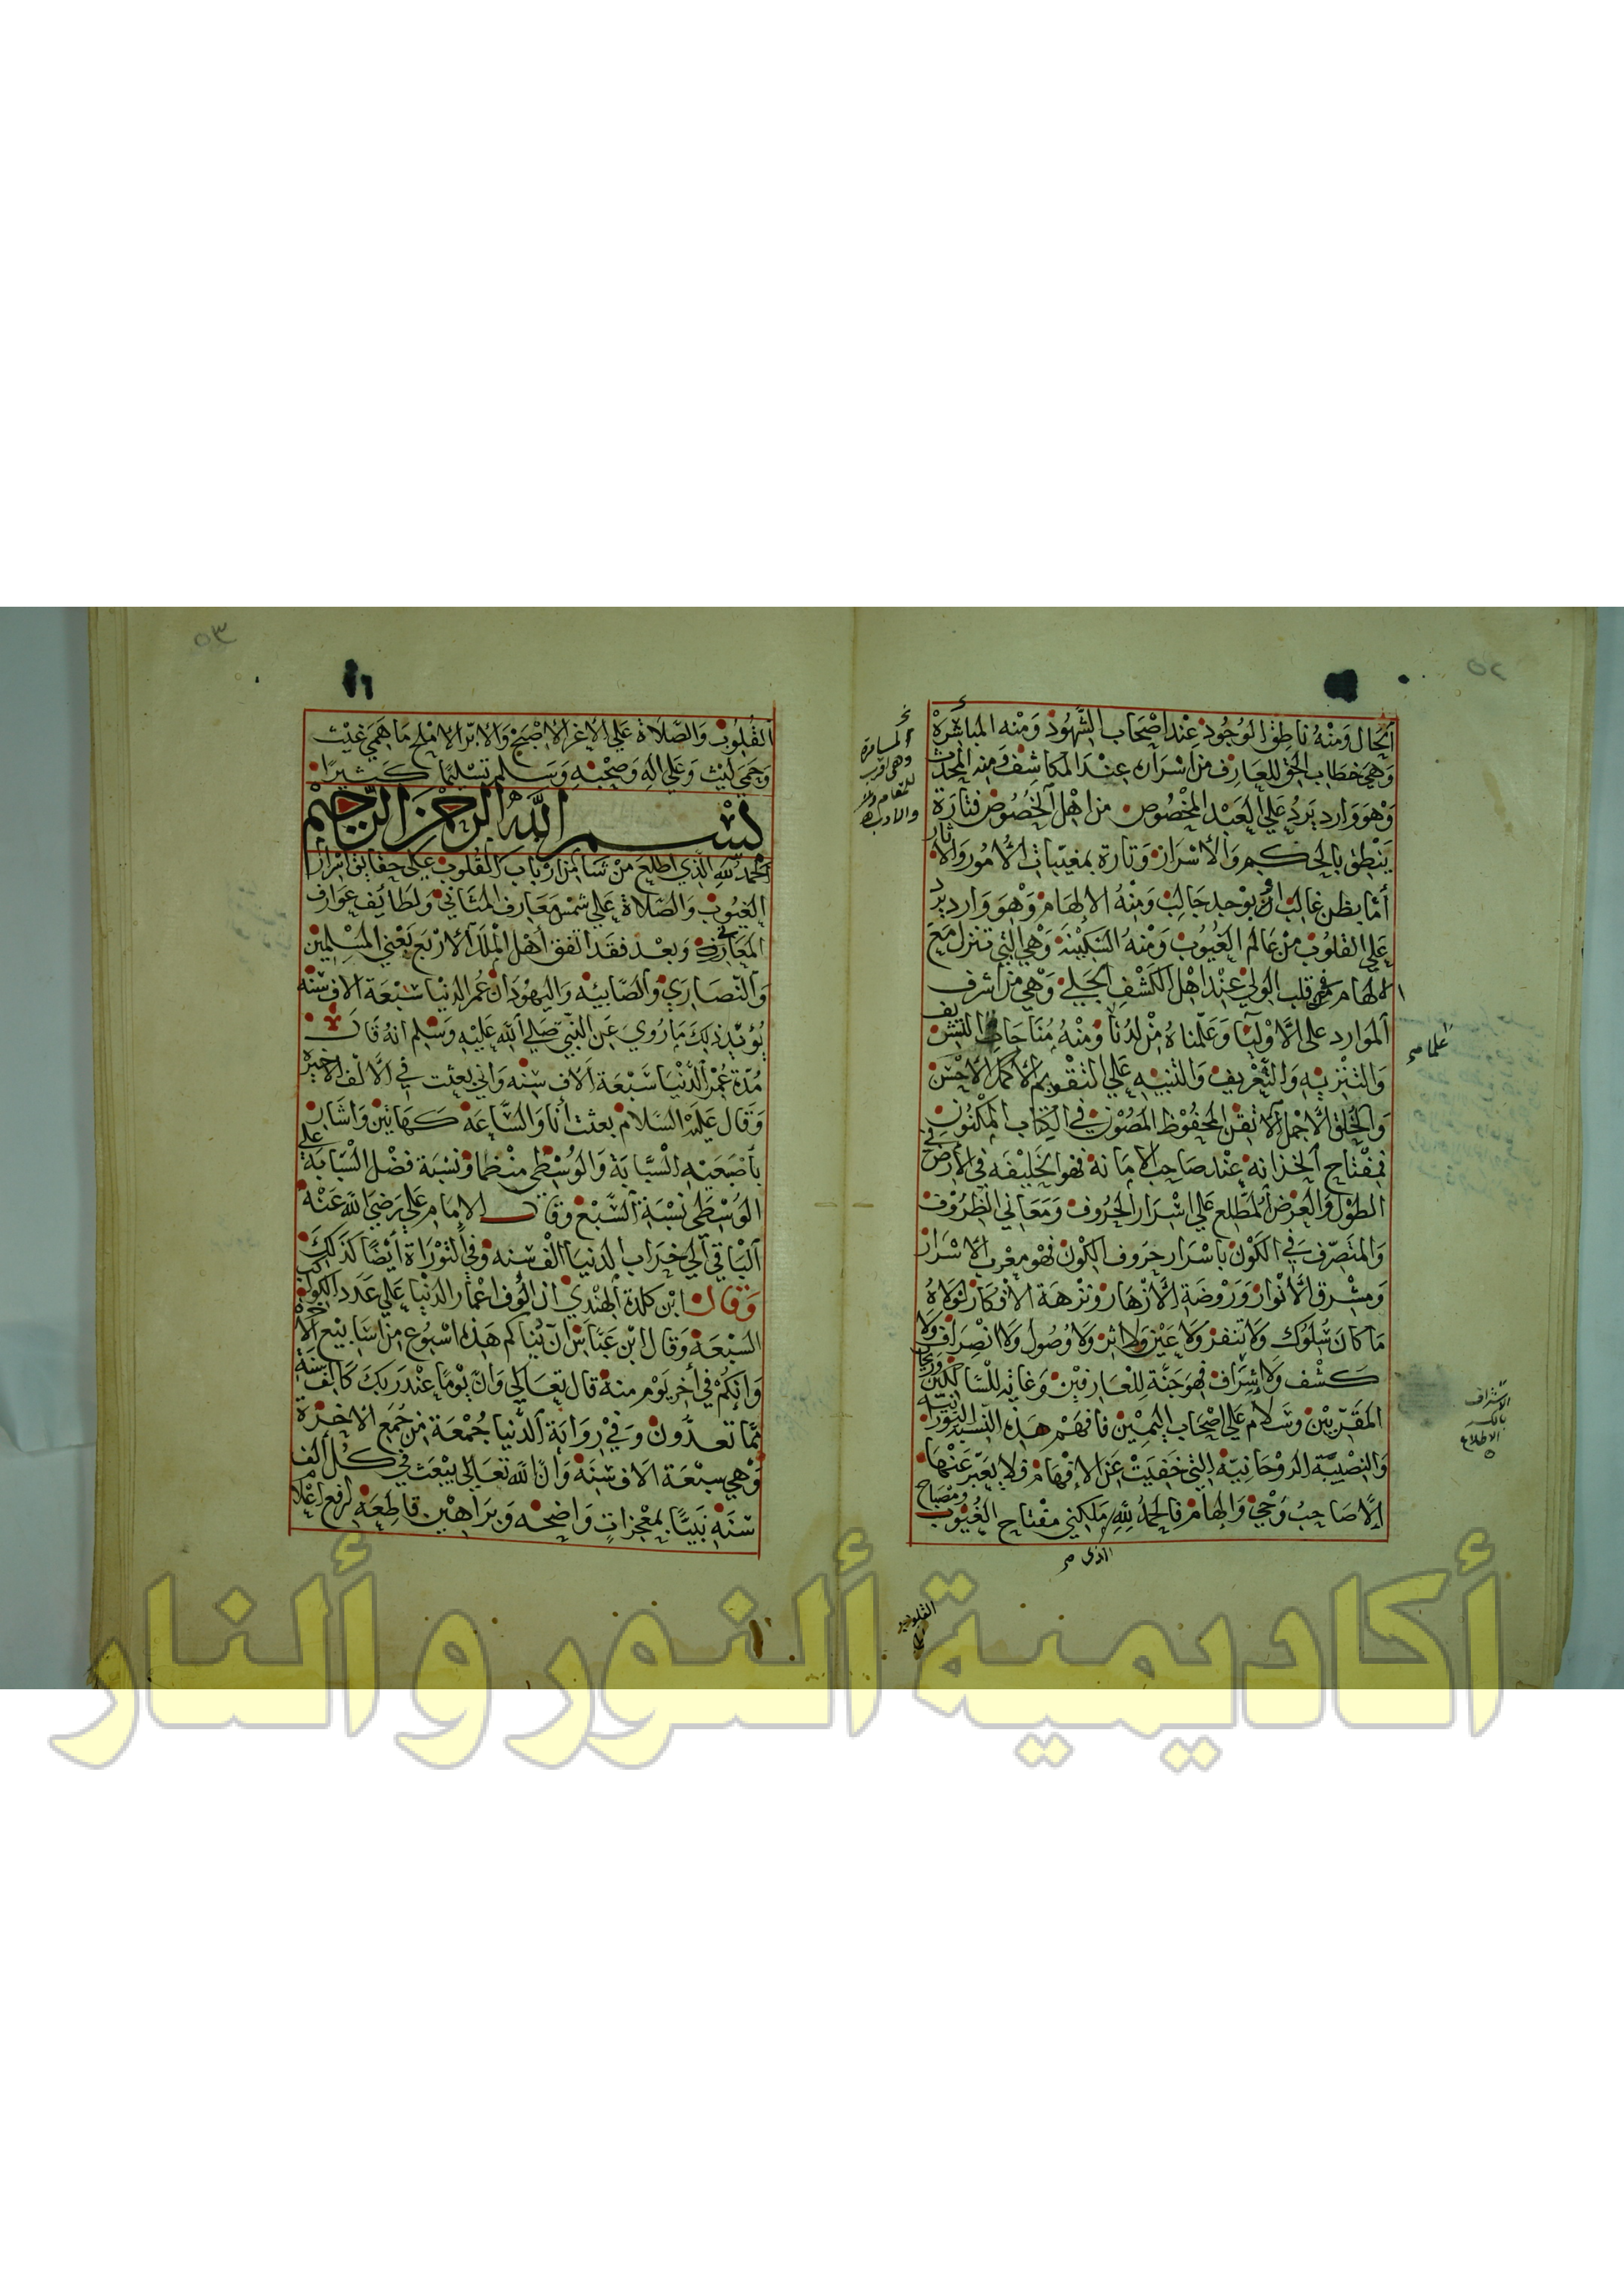 ٥٢
الحال ومنه ناطق الوجود عند اصحاب الشهود ومنه المباشرة
وهي خطاب الحق للعارف من اسراره عند المكاشف ومنه المحدث
وهو وارد يرد علي العبد المخصوص من اهل الخصوص فتارة
ينطق بالحكم والاسرار وتارة بمغيبات الامور والاثار
أما بظن غالب او بوحد جالب ومنه الالهام وهو وارد يرد
علي القلوب من عالم الغيوب ومنه السكينة وهي التي تنزل مع
الالهام في قلب الولي عند اهل الكشف الجلي وهي من اشرف
الموارد على الاوليا وعلمناه من لدنا ومنه مناجات التشريف
والتنزيه والتعريف والتنبيه علي التقويم الاكمل الاحسن
والخلق الاجمل الاتقن المحفوظ المصون في الكتاب المكنون
فمفتاح الخزانة عند صاحب الامانة فهو الخليفة في الارض في
الطول والعرض المطلع علي اسرار الحروف ومعاني الظروف
والمتصرف في الكون باسرار حروف الكون فهو مغرب الاسرار
ومشرق الانوار وروضة الازهار ونزهة الافكار لولاه
ما كان سلوك ولا تنفر ولا عين ولا اثر ولا وصول ولا انصراف ولا
كشف ولا إشراف فهو جنة للعارفين وغاية للسالكين وريحان
المقربين وسلام علي اصحاب اليمين فافهم هذه النسبة النورانية
والنصيبة الروحانية التي خفيت عن الافهام فلا يعبر عنها
إلا صاحب وحي والهام فالحمد لله ملكني مفتاح الغيوب ومصباح
نخ
المسامرة
وهي اقرب
للمقام
والادب
علما صح
الاشراف
بالكسر
الاطلاع
الذى صح
القلوب
٥٣
القلوب والصلاة علي الاغر الاصبح والابر الاملح ما همي غيث
وحمي ليث وعلي اله وصحبه وسلم تسليما كثيرا
بسم الله الرحمن الرحيم
الحمد لله الذي اطلع من شا من ارباب القلوب علي حقايق اسرار
الغيوب والصلاة علي شمس معارف المثاني ولطايف عوارف
المعاني وبعد فقد اتفق اهل الملل الاربع يعني المسلمين
والنصاري والصابيه واليهود ان عمر الدنيا سبعة الاف سنه
يؤيد ذلك ما روي عن النبي صلي الله عليه وسلم انه قال
مدة عمر الدنيا سبعة الاف سنه واني بعثت في الالف الاخيرة
وقال عليه السلام بعثت أنا والساعة كهاتين واشار
باصبعيه السبابة والوسطي منظما ونسبة فضل السبابة علي
الوسطي نسبة السبع وقال الامام علي رضي الله عنه
الباقي الي خراب الدنيا الف سنه وفي التوراة أيضا كذلك
وقال ابن كلدة الهندي ان الوف اعمار الدنيا علي عدد الكواكب
السبعة وقال ابن عباس ان دنياكم هذه اسبوع من اسابيع الاخرة
وانكم في أخر يوم منه قال تعالي وان يوما عند ربك كالف سنة
مما تعدون وفي رواية الدنيا جمعة من جمع الاخرة
وهي سبعة الاف سنة وان الله تعالي يبعث في كل الف
سنة نبيا بمعجزات واضحه وبراهين قاطعة لرفع اعلام
أكاديمية ألنور وألنار